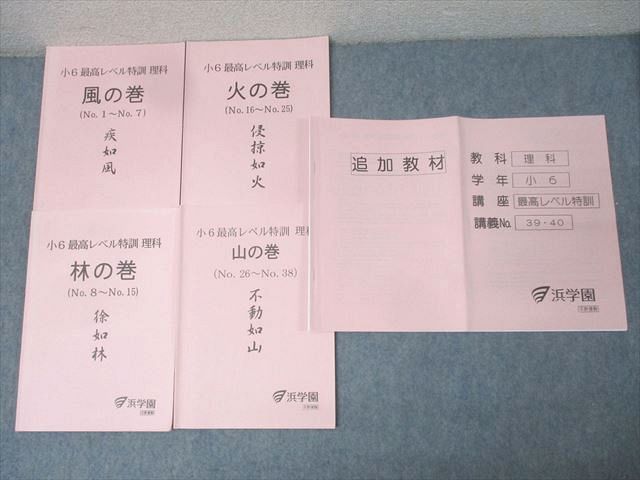 小6 最高レベル特訓 理科
風の巻
(No. 1～No. 7)
疾如風
小6 最高レベル特訓 理科
火の巻
(No. 16～No. 25)
侵掠如火
小6 最高レベル特訓 理科
林の巻
(No. 8～No. 15)
徐如林
浜学園
小6 最高レベル特訓 理科
山の巻
(No. 26～No. 38)
不動如山
浜学園
追加教材
教科 理科
学年 小6
講座 最高レベル特訓
講義No. 39・40
浜学園